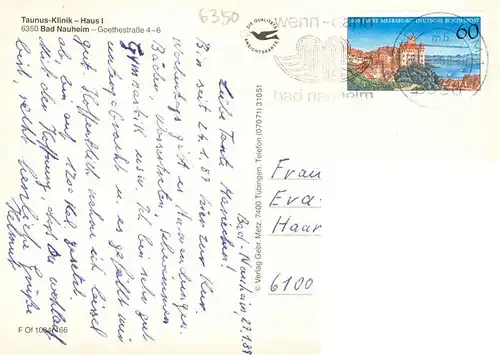 Taunus-Klinik – Haus I
6350 Bad Nauheim – Goethestraße 4–6
6350
DIE QUALITÄTS
ANSICHTSKARTE
wenn - dann
bad nauheim
1000 JAHRE MEERSBURG DEUTSCHE BUNDESPOST
60
Bad-Nauheim, 27.1.88
Liebe Tante Mariechen!
Bin seit 27.1.88 hier zur Kur.
Wochentags gibt es Anwendungen
Bäder, Schwimmen
Gymnastik usw. Ich bin sehr gut
untergebracht u. es gefällt mir
gut. Hoffentlich nehme ich bissel
ab, bin auf 1200 Kal. gesetzt.
Mit der Hoffnung, daß Du wohlauf
bist, recht herzliche Grüße
Helmut
© Verlag Gebr. Metz, 7400 Tübingen, Telefon (07071) 31051
Frau
Eva
Haar
6100
F Of 1084/166